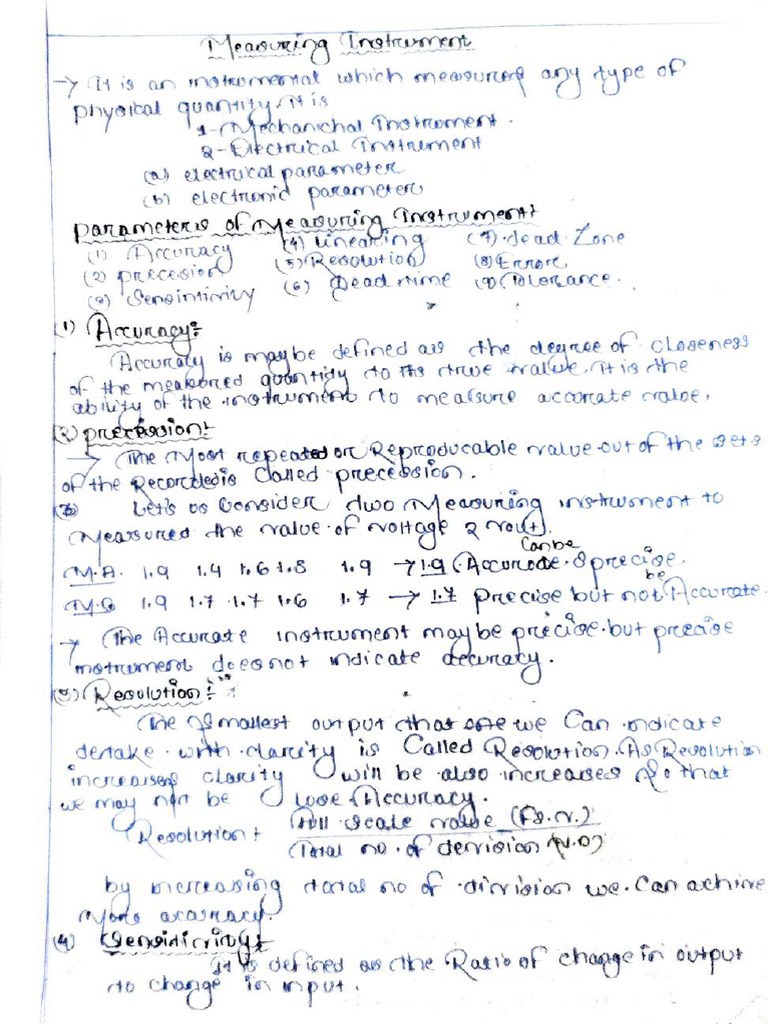 Measuring Instrument
→ It is an instrumental which measures any type of
physical quantity. It is
1 - Mechanichal Instroment.
2 - Electrical Instrument
(a) electrical parameter
(b) electronic parameters
Parameters of Measuring Instrument:
(1) Accuracy (4) Linearing (7) dead Zone
(2) precession (5) Resolution (8) Error
(3) Sensintivity (6) Dead time (9) Tolorance.
(1) Accuracy:
Accuracy is maybe defined as the degree of closeness
of the measured quantity to its true value. It is the
ability of the instrument to measure accurate value.
(2) precession:
→ The Most repeated or Reproducable value out of the sets
of the Recorded is Called precession.
Let's us Consider two Measuring instrument to
Measured the value of voltage 2 vout.
M.A. 1.9 1.4 1.6 1.8 1.9 → 1.9 Can be Accurate & precise.
M.B 1.9 1.7 1.7 1.6 1.7 → 1.7 precise but not be Accurate.
→ The Accurate instrument may be precise but precise
instrument does not indicate accuracy.
(3) Resolution:
The Smallest output that we Can indicate
dertake with clarity is Called Resolution. As Resolution
increases clarity will be also increases so that
we may not be lose Accuracy.
Resolution: full scale value (F.S.V.)
Total no. of devision (N.D)
by increasing total no of division we Can achive
More acuracy.
(4) Sensitivity:
It is defined as the Ratio of change in output
to change in input.